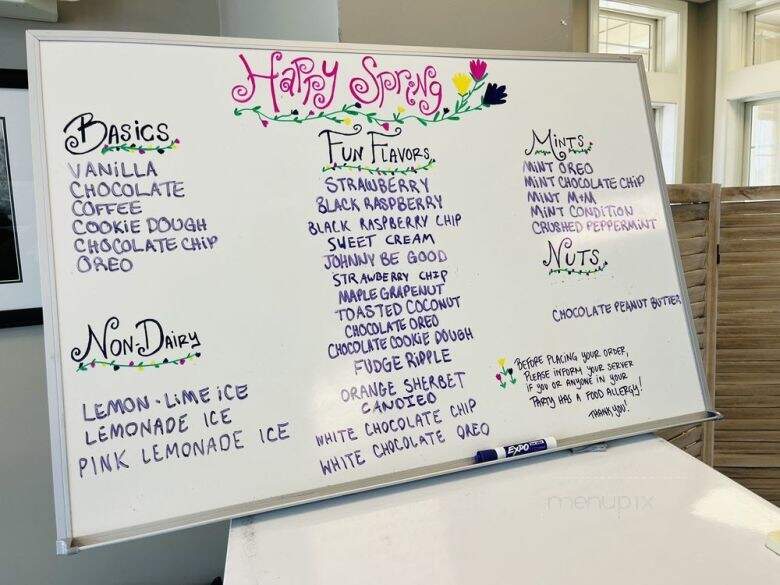 Happy Spring
Basics
VANiLLA
CHOCOLATE
COFFEE
COOKIE DOUGH
CHOCOLATE CHiP
OREO
Non-Dairy
LEMON-LiME iCE
LEMONADE ICE
PINK LEMONADE ICE
Fun Flavors
STRAWBERRY
BLACK RASPBERRY
BLACK RASPBERRY CHIP
SWEET CREAM
JOHNNY BE GOOD
STRAWBERRY CHIP
MAPLE GRAPENUT
TOASTED COCONUT
CHOCOLATE OREO
CHOCOLATE COOKIE DOUGH
FUDGE RiPPLE
ORANGE SHERBET
CANOIEO
WHITE CHOCOLATE CHIP
WHITE CHOCOLATE OREO
Mints
MiNT OREO
MiNT CHOCOLATE CHiP
MINT M+M
MiNT CONDITION
CRUSHED PEPPERMINT
Nuts
CHOCOLATE PEANUT BUTTER
BEFORE PLACING YOUR ORDER,
PLEASE INFORM YOUR SERVER
IF YOU OR ANYONE IN YOUR
PARTY HAS A FOOD ALLERGY!
THANK YOU!
EXPO
menupix